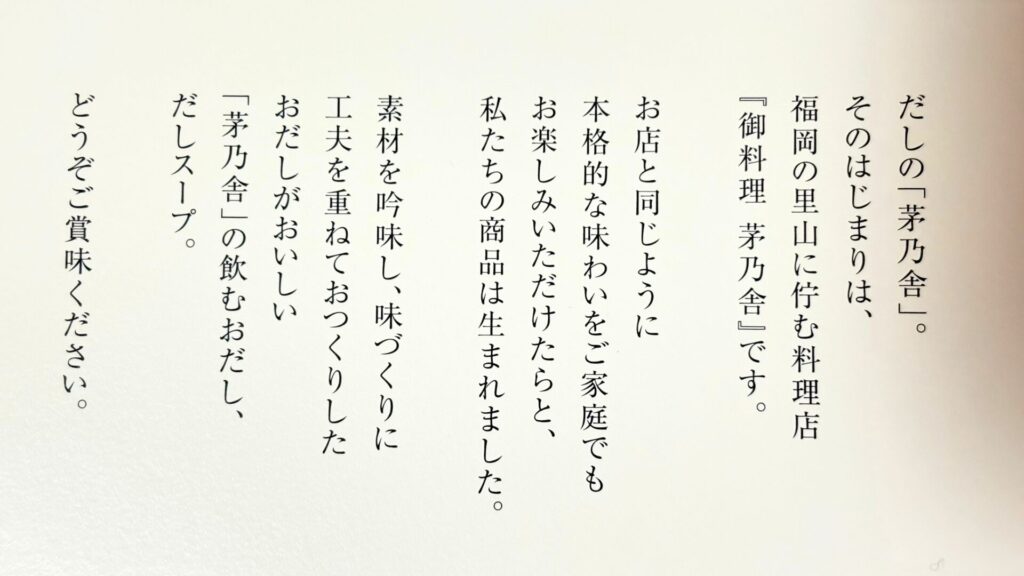 だしの「茅乃舎」。
そのはじまりは、
福岡の里山に佇む料理店
『御料理 茅乃舎』です。
お店と同じように
本格的な味わいをご家庭でも
お楽しみいただけたらと、
私たちの商品は生まれました。
素材を吟味し、味づくりに
工夫を重ねておつくりした
おだしがおいしい
「茅乃舎」の飲むおだし、
だしスープ。
どうぞご賞味ください。